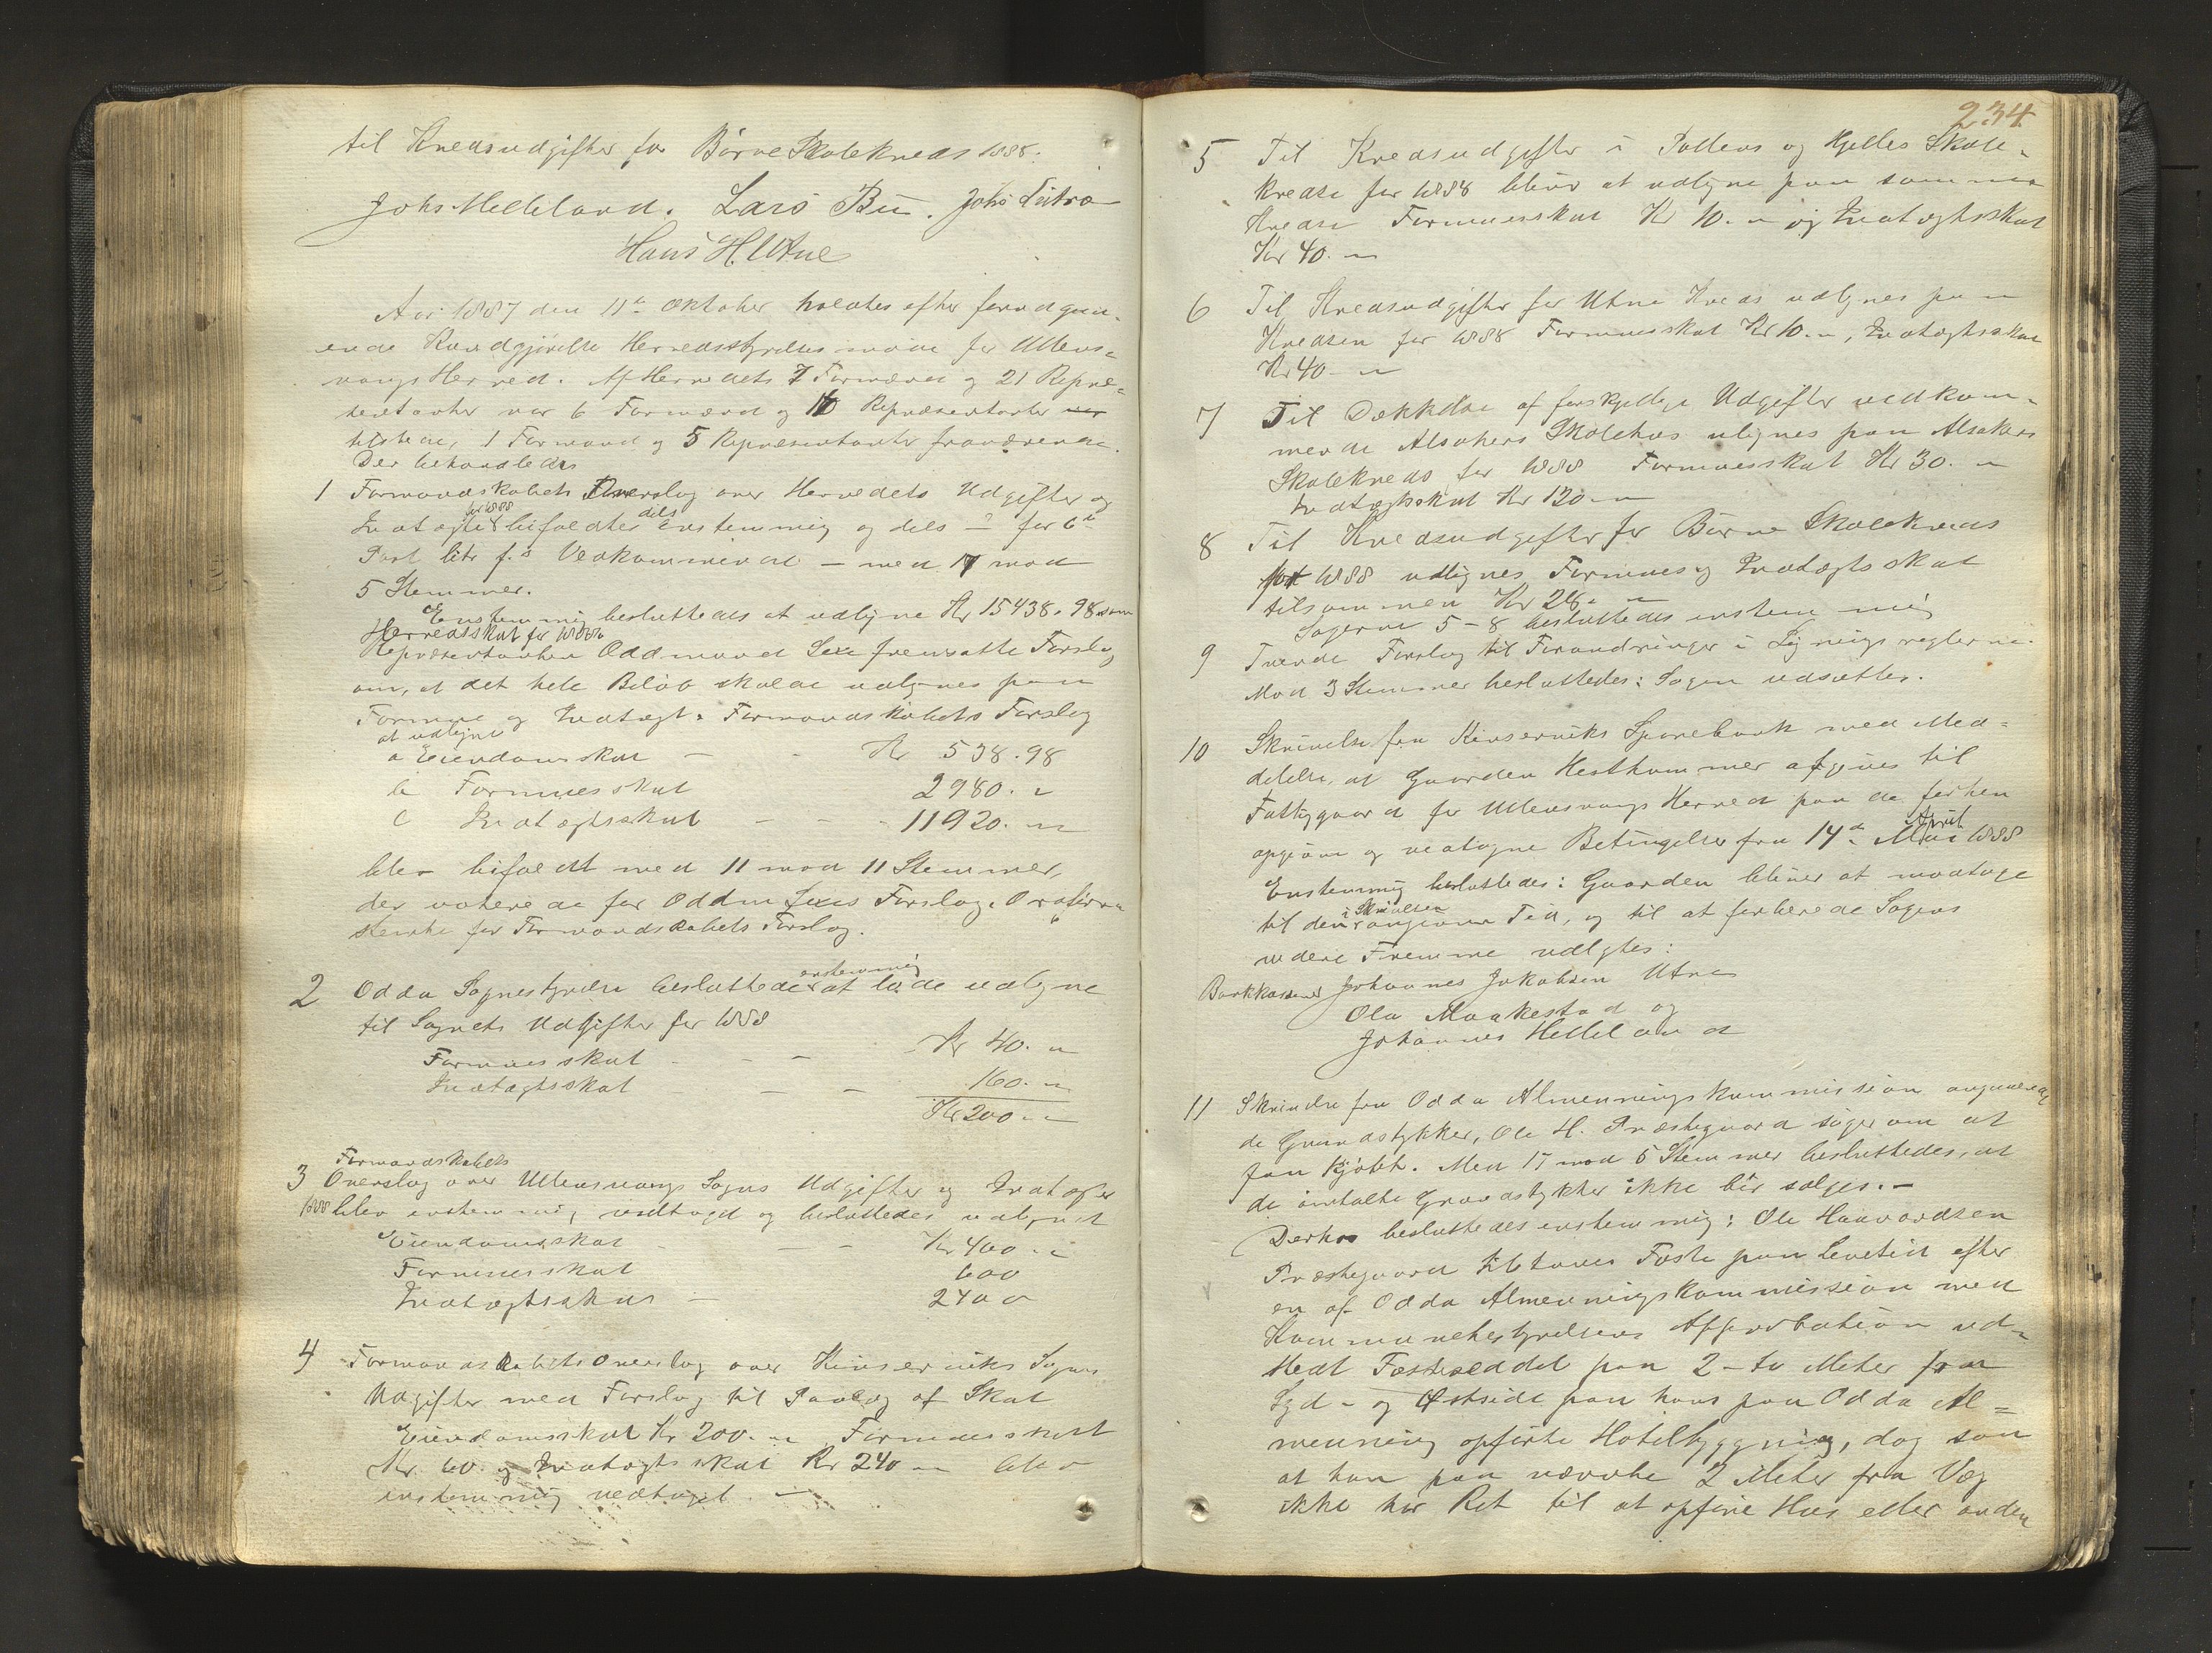 til Kredsudgifter for Børve Skolekreds 1888.
Johs Helleland. Lars Bu. Johs
Hans H. Utne
Aar 1887 den 11te Oktober holdtes efter forudgaa-
ende Kundgjørelse Herredsstyrelsesmøde for Ullens-
vangs Herred. Af Herredets 7 Formænd og 21 Repræ-
sentanter var 6 Formænd og 16 Repræsentanter
tilstede, 1 Formand og 5 Repræsentanter fraværende.
Der behandledes
1 Formandskabets Overslag over Herredets Udgifter og
for 1888 dels
Indtægter bifaldtes Enstemmig og dels for 6te
Post litr f.s Vedkommende - med 17 mod
5 Stemmer.
Enstemmig besluttedes at udligne Kr 15438.98 som
Herredsskat for 1888
Repræsentanten Oddmund Sexe fremsatte Forslag
om, at det hele Beløb skulde udlignes paa
Formue og Indtægt. Formandskabets Forslag
at udligne
a Eiendomsskat - - Kr 538.98
b Formuesskat 2980. "
c Indtægtsskat - - - 11920. "
blev bifaldt med 11 mod 11 Stemmer,
der voterede for Oddm Sexes Forslag. Ordføreren
stemte for Formandskabets Forslag.
2 Odda Sognestyrelse besluttede enstemmig at lade udligne
til Sognets Udgifter for 1888
Formuesskat - - - Kr 40. "
Indtægtsskat - - 160. "
Kr 200. "
Formandskabets
3 Overslag over Ullensvangs Sogns Udgifter og Indtægter
1888 blev enstemmig vedtaget og besluttedes udlignet
Eiendomsskat - - - Kr 400. "
Formuesskat 600
Indtægtsskat - 2400
4 Formandskabets Overslag over Kinserviks Sogns
Udgifter med Forslag til Paalæg af Skat
Eiendomsskat Kr 200. " Formuesskat
Kr. 60. og Indtægtsskat Kr 240 " blev
enstemmig vedtaget. -
234
5 Til Kredsudgifter i Pollens og Hjelles Skole-
kredse for 1888 bliver at udligne paa samme
Kredse Formuesskat Kr 10. " og Indtægtsskat
Kr 40. "
6 Til Kredsudgifter for Utne Kreds udlignes paa
Kredsen for 1888 Formuesskat Kr 10. ", Indtægtsskat
Kr 40. "
7 Til Dækkelse af forskjellige Udgifter vedkom-
mende Alsakers Skolehus udlignes paa Alsakers
Skolekreds for 1888 Formuesskat Kr 30. "
Indtægtsskat Kr 120. "
8 Til Kredsudgifter for Børve Skolekreds
for 1888 udlignes Formues og Indtægtsskat
tilsammen Kr 28. "
Sagerne 5-8 besluttedes enstemmig
9 Tvende Forslag til Forandringer i Ligningsreglerne.
Mod 3 Stemmer besluttedes: Sagen udsættes.
10 Skrivelse fra Kinserviks Sparebank med Med-
delelse, at Gaarden Hesthammer afgives til
Fattiggaard for Ullensvangs Herred paa de forhen
opgivne og vedtagne Betingelser fra 14de April 1888
Enstemmig besluttedes: Gaarden bliver at modtage
i Skrivelsen
til den angivne Tid, og til at forberede Sagens
videre Fremme valgtes:
Bankkasserer Johannes Jakobsen Utne
Ola Maakestad og
Johannes Helleland
11 Skrivelse fra Odda Almenningskommission angaaende
de Grundstykker, Ole H. Præstegaard søger om at
faa Kjøbt. Med 17 mod 5 Stemmer besluttedes, at
de omtalte Grundstykker ikke bør sælges. -
Derhos besluttedes enstemmig: Ole Haavardsen
Præstegaard tilstaaes Fæste paa Levetid efter
en af Odda Almenningskommission med
Kommunebestyrelsens Approbation ud-
stedt Fæsteseddel paa 2 - to Meter fra
Syd - og Østside paa hans paa Odda Al-
menning opførte Hotelbygning, dog saa
at han paa nævnte 2 Meter fra Væg
ikke har Ret til at opføre Hus eller anden